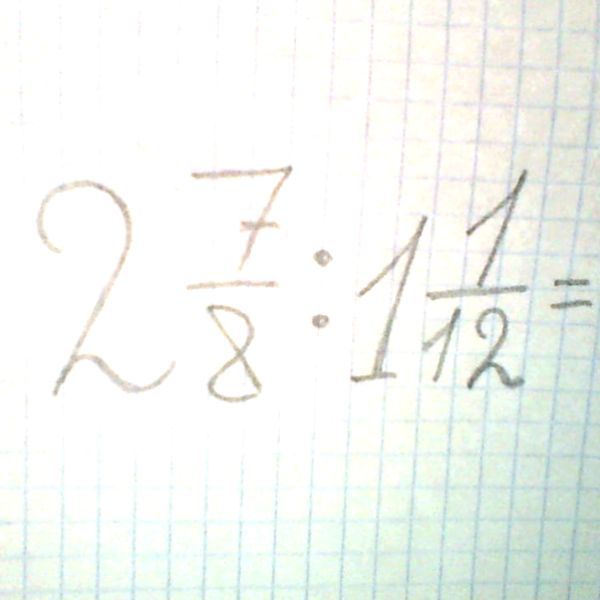 2 7/8 : 1 1/12 =